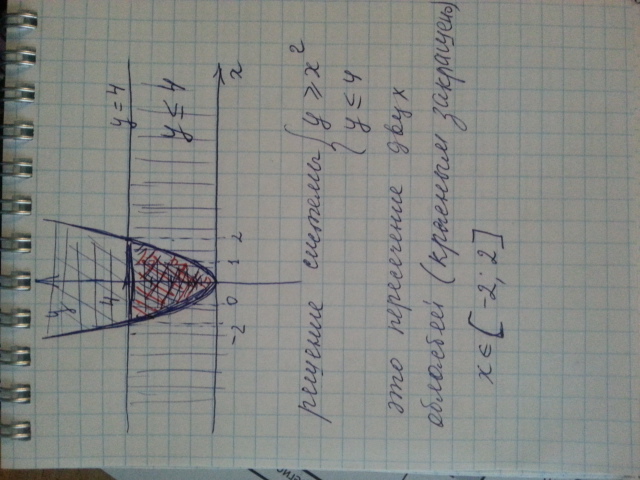 y
y = 4
4
y ≤ 4
-2 0 1 2 x
решение системы { y ≥ x²
{ y ≤ 4
это пересечение двух
областей (красным закрашено)
x ∈ [-2; 2]